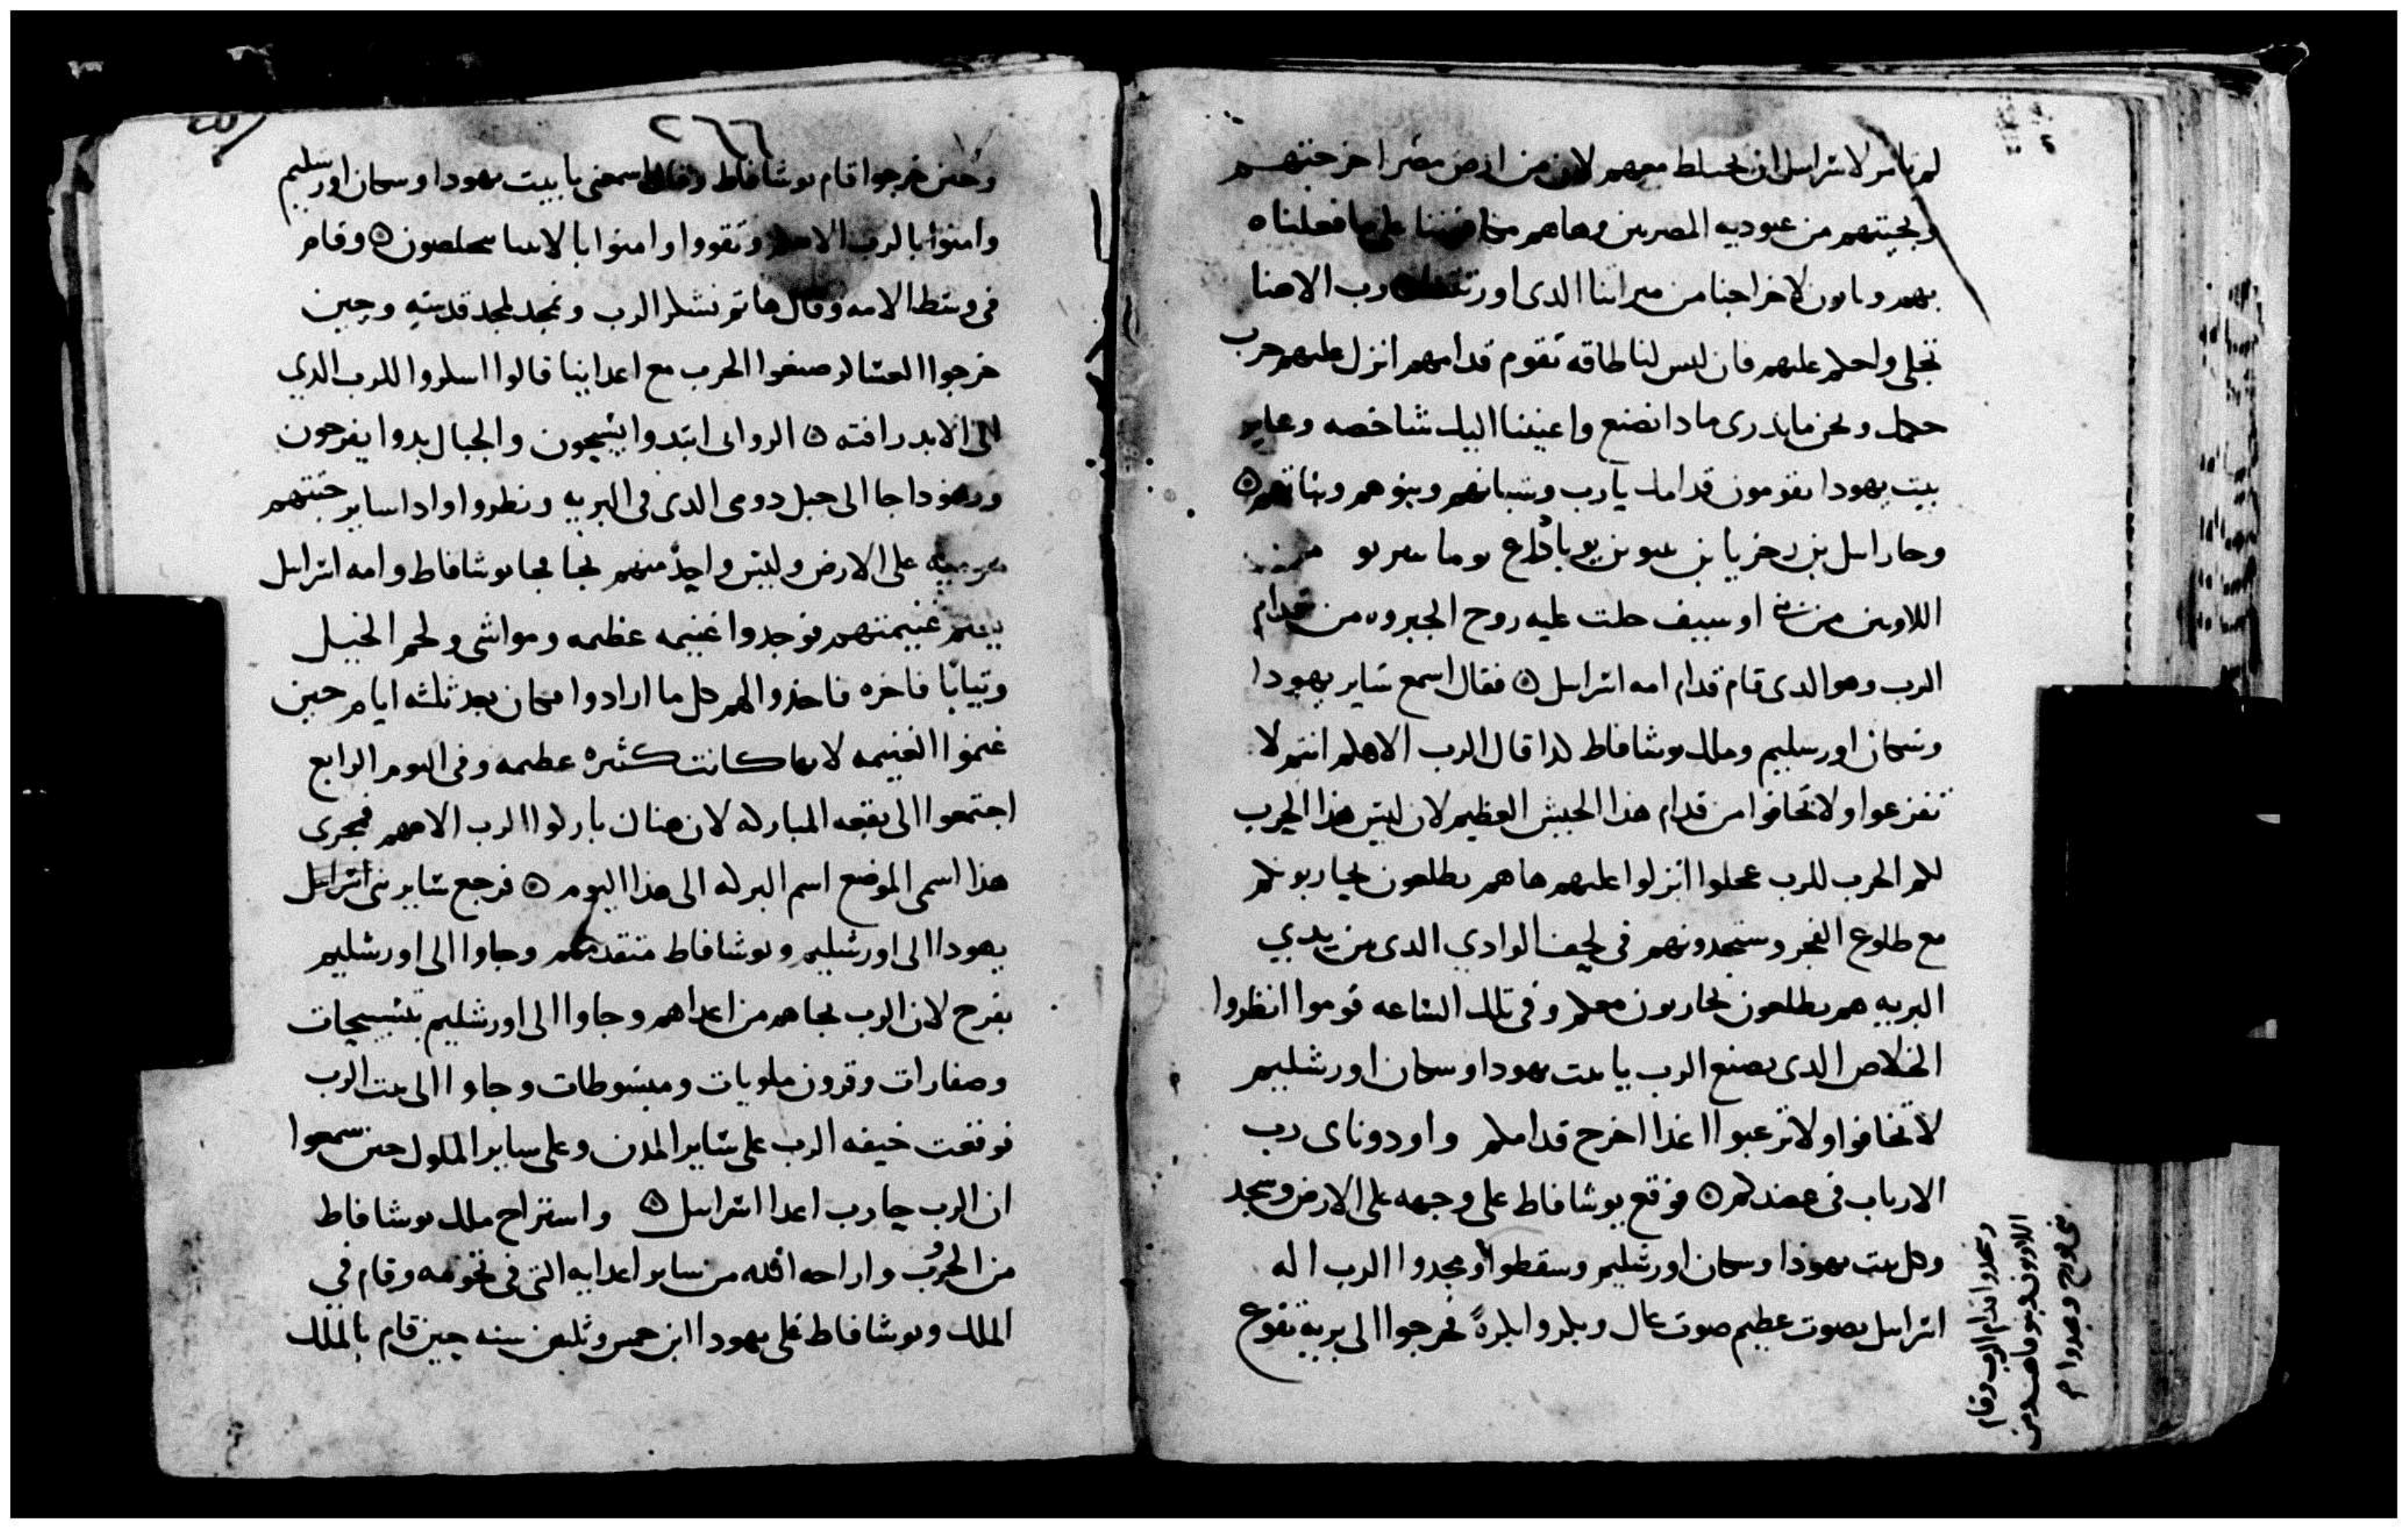 لم تامر لاسراىيل ان نختلط معهم لان من ارض مصر اخرجتهم
ونجيتهم من عبوديه المصريين وها هم على ما فعلناه
بهم لاخراجنا من ميراتنا الدى اورتتنا رب الاهنا
تجلى واحكم عليهم فان ليس لنا طاقه نقوم قدامهم انزل عليهم حرب
حكمك ونحن ما ندرى مادا نصنع واعيننا اليك شاخصه
بيت يهودا يقومون قدامك يارب ونسيانهم وبنوهم وبناتهم ⊙
بن زخريا بن
اللاويين من اوسيف حلت عليه روح الجبروه من قدام
الرب وهو الدى قام قدام امه اسراىيل ⊙ فقال اسمع ساير يهودا
وسكان اورسليم وملك يوشافاط كدا قال الرب الاهكم انتم لا
تفزعوا ولا تخافوا من قدام هذا الجيش العظيم لان ليس هذا الحرب
لكم الحرب للرب عجلوا انزلوا عليهم ها هم يطلعون يحاربونكم
مع طلوع الفجر وستجدونهم فى لحف الوادي الدى بين يدي
البريه هم يطلعون يحاربون معكم وفى تلك الساعه قوموا انظروا
الخلاص الدى يصنع الرب يا بيت يهودا وسكان اورشليم
لا تخافوا ولا ترعبوا اغدا اخرج قدامكم وادوناى رب
الارباب فى عضدكم ⊙ فوقع يوشافاط على وجهه على الارض وسجد
وكل بيت يهودا وسكان اورشليم وسقطوا ومجدوا الرب اله
اسراىيل بصوت عظيم صوت عال وبكروا بكرة فخرجوا الى بريه تقوع
وسجدوا قدام الرب وقام
اللاويون بنو قاهث ومن
بنى قورح ومجدوا م
٢٦٦
وحين خرجوا قام يوشافاط وقال اسمعنى يا بيت يهودا وسكان اورسليم
وامنوا بالرب الاهكم وتقووا وامنوا بالانبيا تخلصون ⊙ وقام
فى وسط الامه وقال هاتم نشكر الرب ونمجد لمجد قدسه وحين
خرجوا العساكر صنعوا الحرب مع اعداينا قالوا اسكروا للرب الذي
الى الابد رافته ⊙ الروابى ابتدوا يسبحون والجبال بدوا يفرحون
ويهودا جا الى جبل دومى الدى فى البريه ونظروا وادا ساير جتتهم
مرميه على الارض وليس واحد منهم نجا فجا يوشافاط وامه اسراىيل
يغنم غنيمتهم فوجدوا غنيمه عظيمه ومواشى ولحم الخيل
وتيابا فاخره فاخذوا لهم كل ما ارادوا فكان بعد ثلثه ايام حين
غنموا الغنيمه لانها كانت كثيره عظيمه وفى اليوم الرابع
اجتمعوا الى بقعه المباركه لان هناك باركوا الرب الاههم فجرى
هذا اسمى الموضع اسم البركه الى هذا اليوم ⊙ فرجع ساير بنى اسراىيل
يهودا الى اورشليم ويوشافاط متقدمهم وجاوا الى اورشليم
بفرح لان الرب نجاهم من اعداهم وجاوا الى اورشليم بتسبيحات
وصفارات وقرون ملويات ومبسوطات وجاوا الى بيت الرب
فوقعت خيفه الرب على ساير المدن وعلى ساير الملوك حين سمعوا
ان الرب حارب اعدا اسراىيل ⊙ واستراح ملك يوشافاط
من الحرب واراحه الله من ساير اعدايه التى فى تخومه وقام في
الملك ويوشافاط على يهودا ابن خمس وثلثين سنه حين قام بالملك